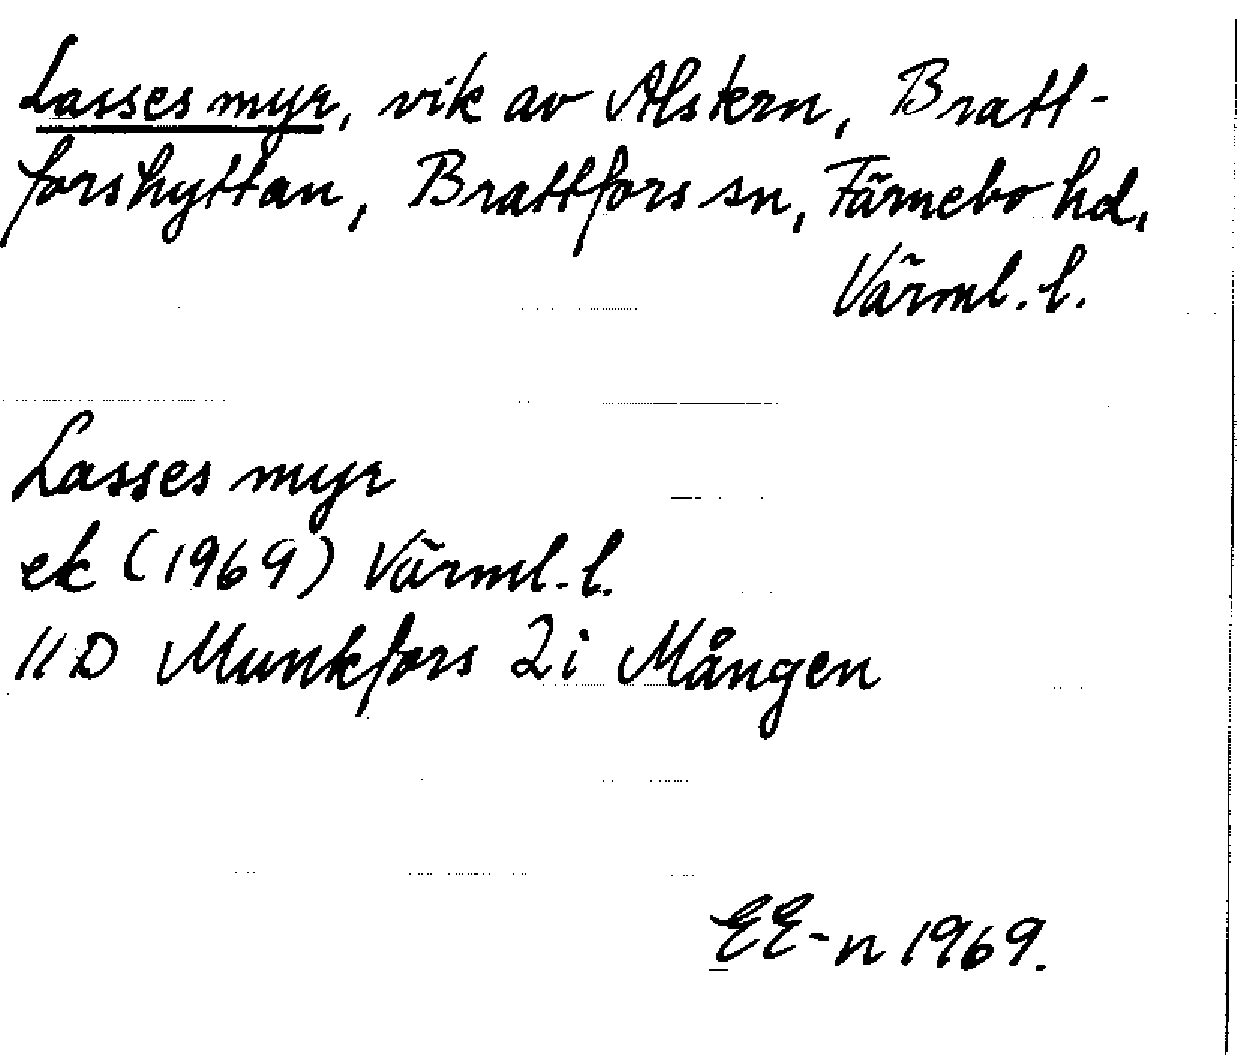 Lasses myr, vik av Alstern, Bratt-
forshyttan, Brattfors sn, Färnebo hd,
Värml. l.
Lasses myr
ek (1969) Värml. l.
11D Munkfors 2i Mången
EE-n 1969.